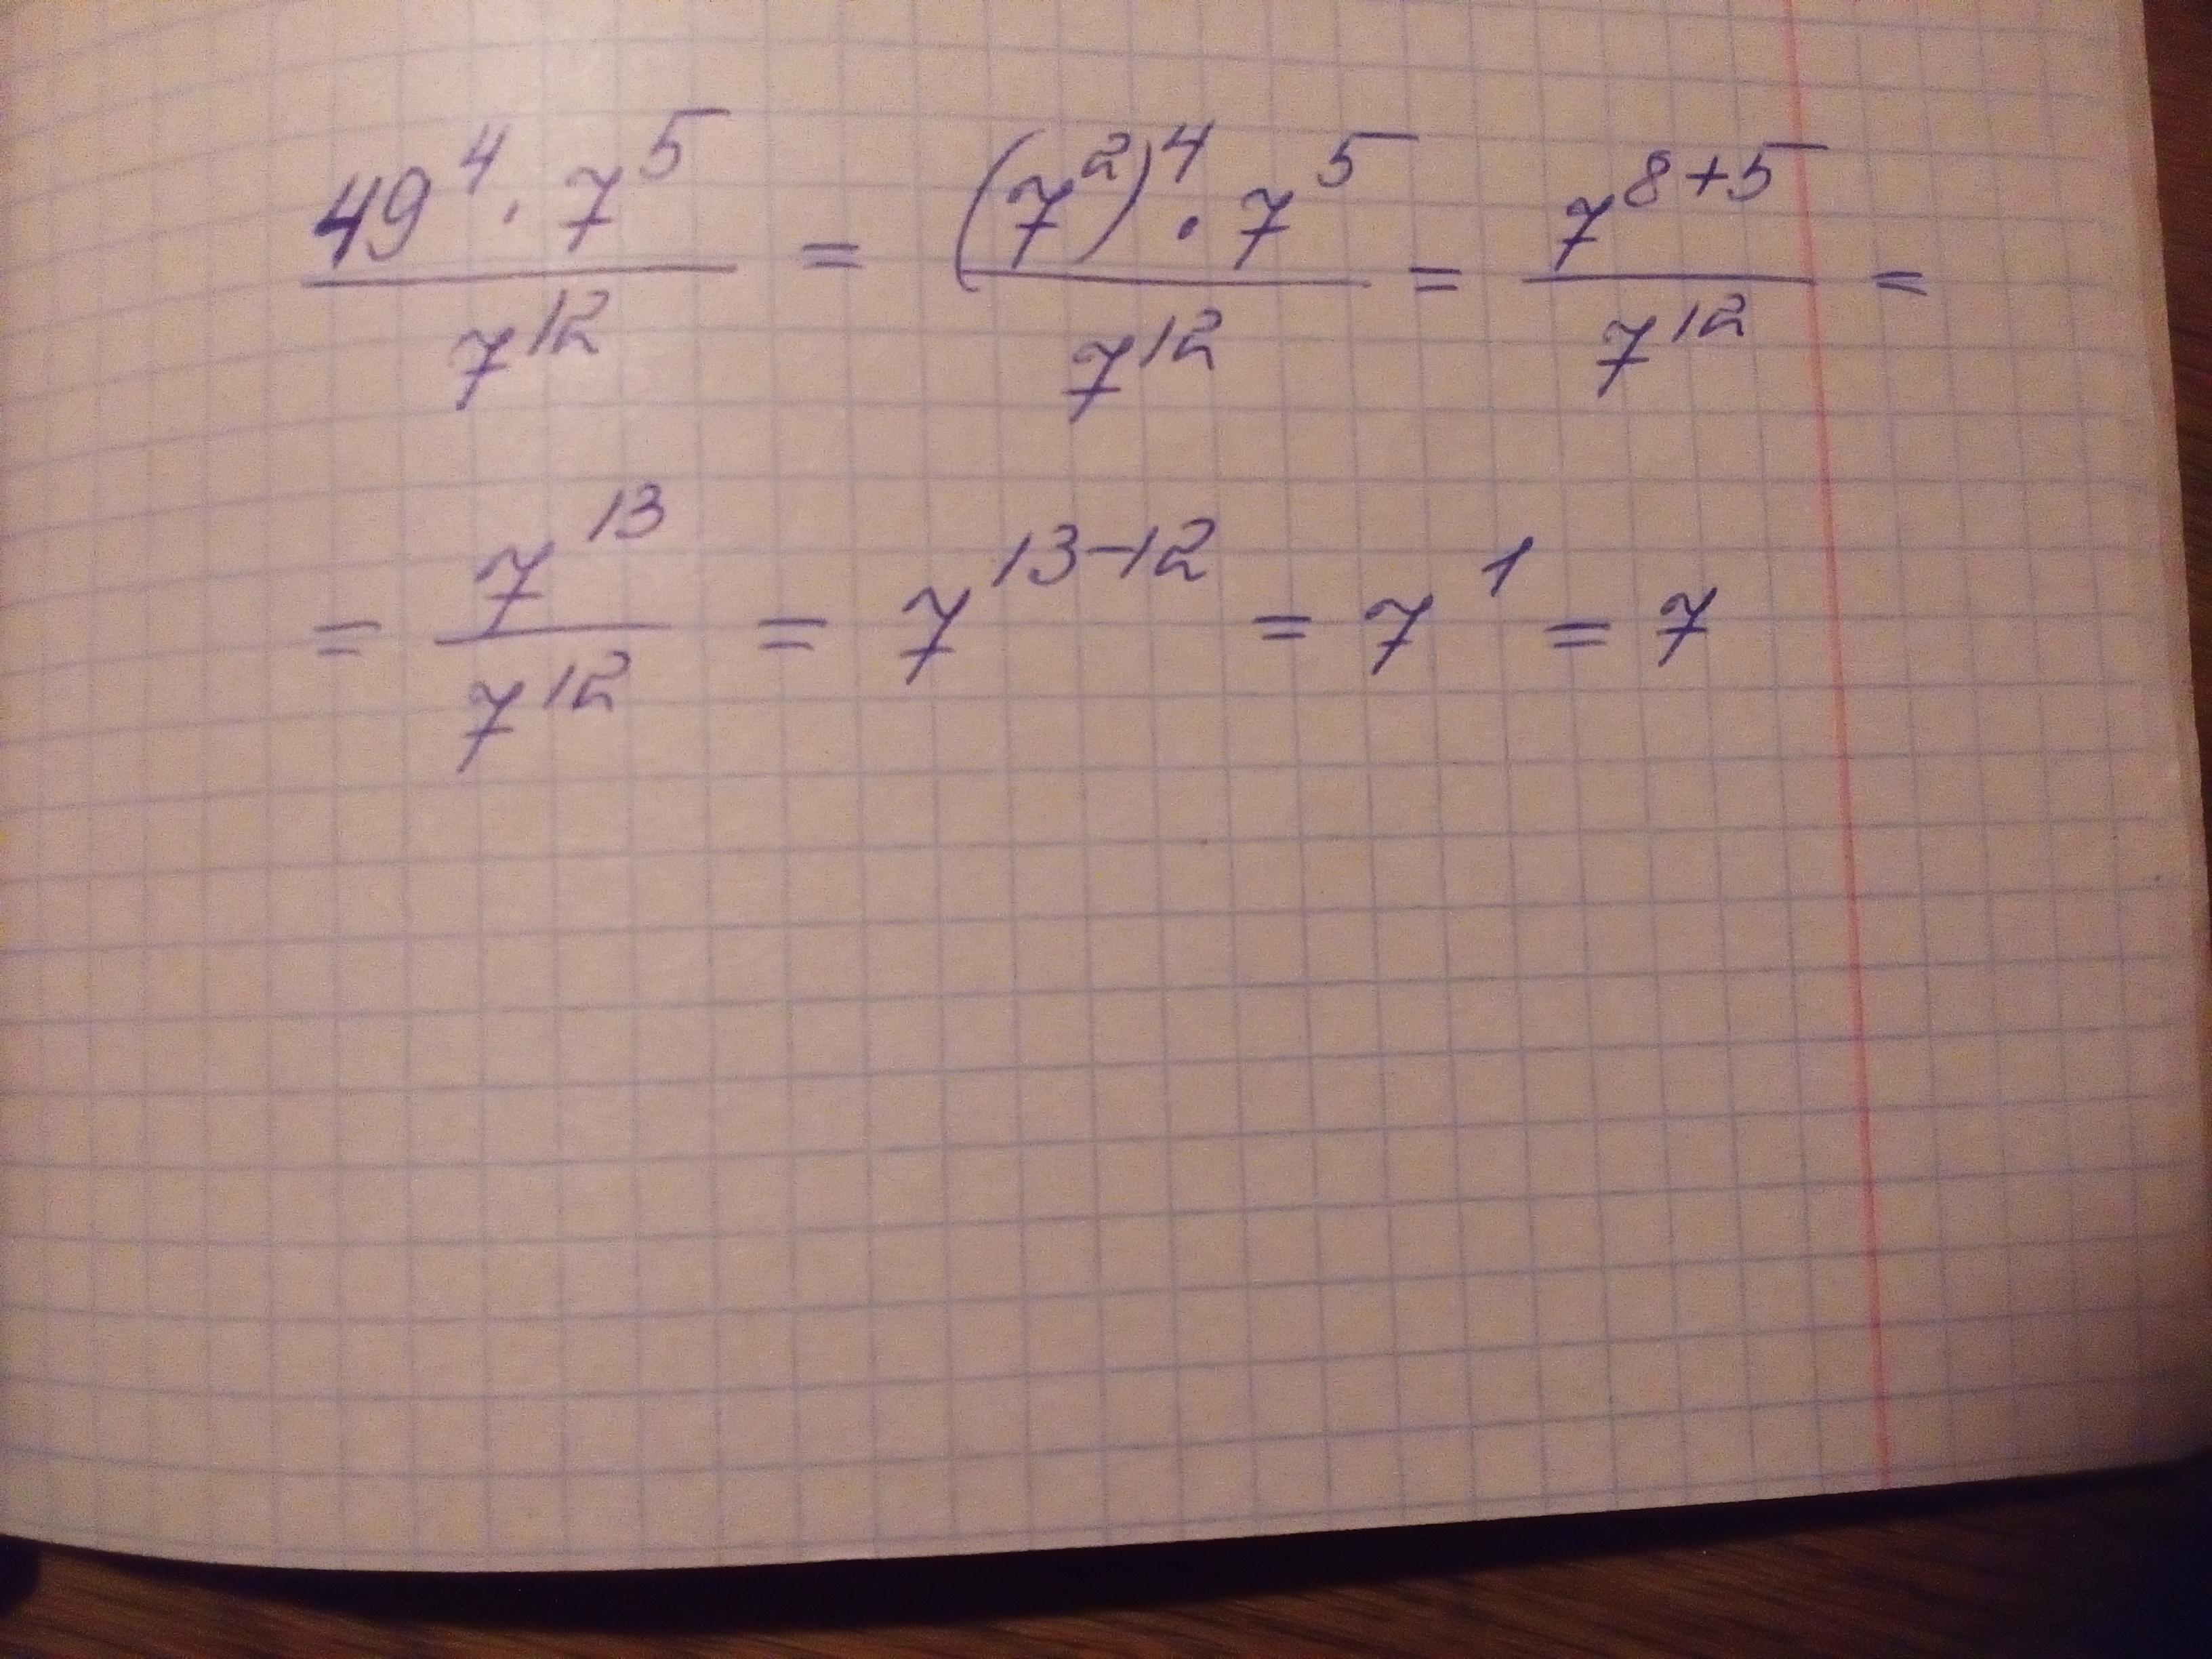 49⁴ · 7⁵ / 7¹² = (7²)⁴ · 7⁵ / 7¹² = 7⁸⁺⁵ / 7¹² =
= 7¹³ / 7¹² = 7¹³⁻¹² = 7¹ = 7